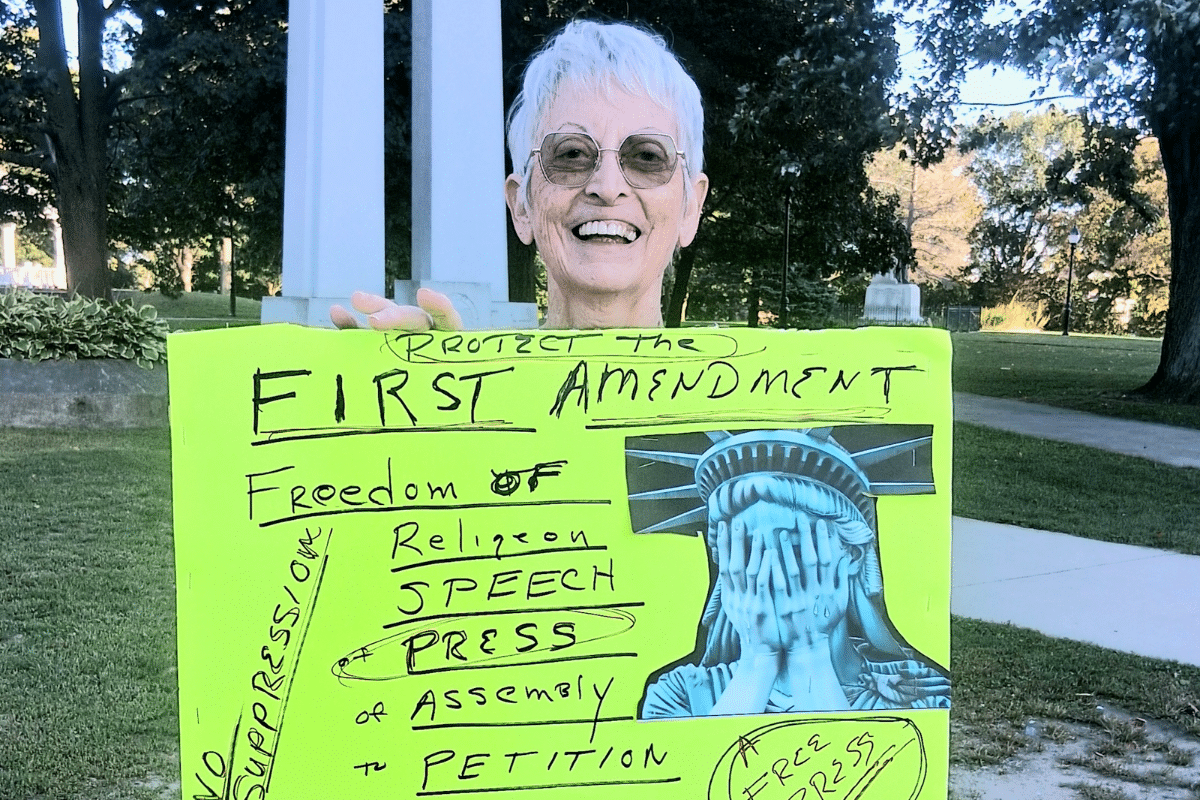 PROTECT the
FIRST AMENDMENT
Freedom OF
Religeon
SPEECH
of PRESS
of Assembly
to PETITION
NO
SUPPRESSION
A
FREE
PRESS